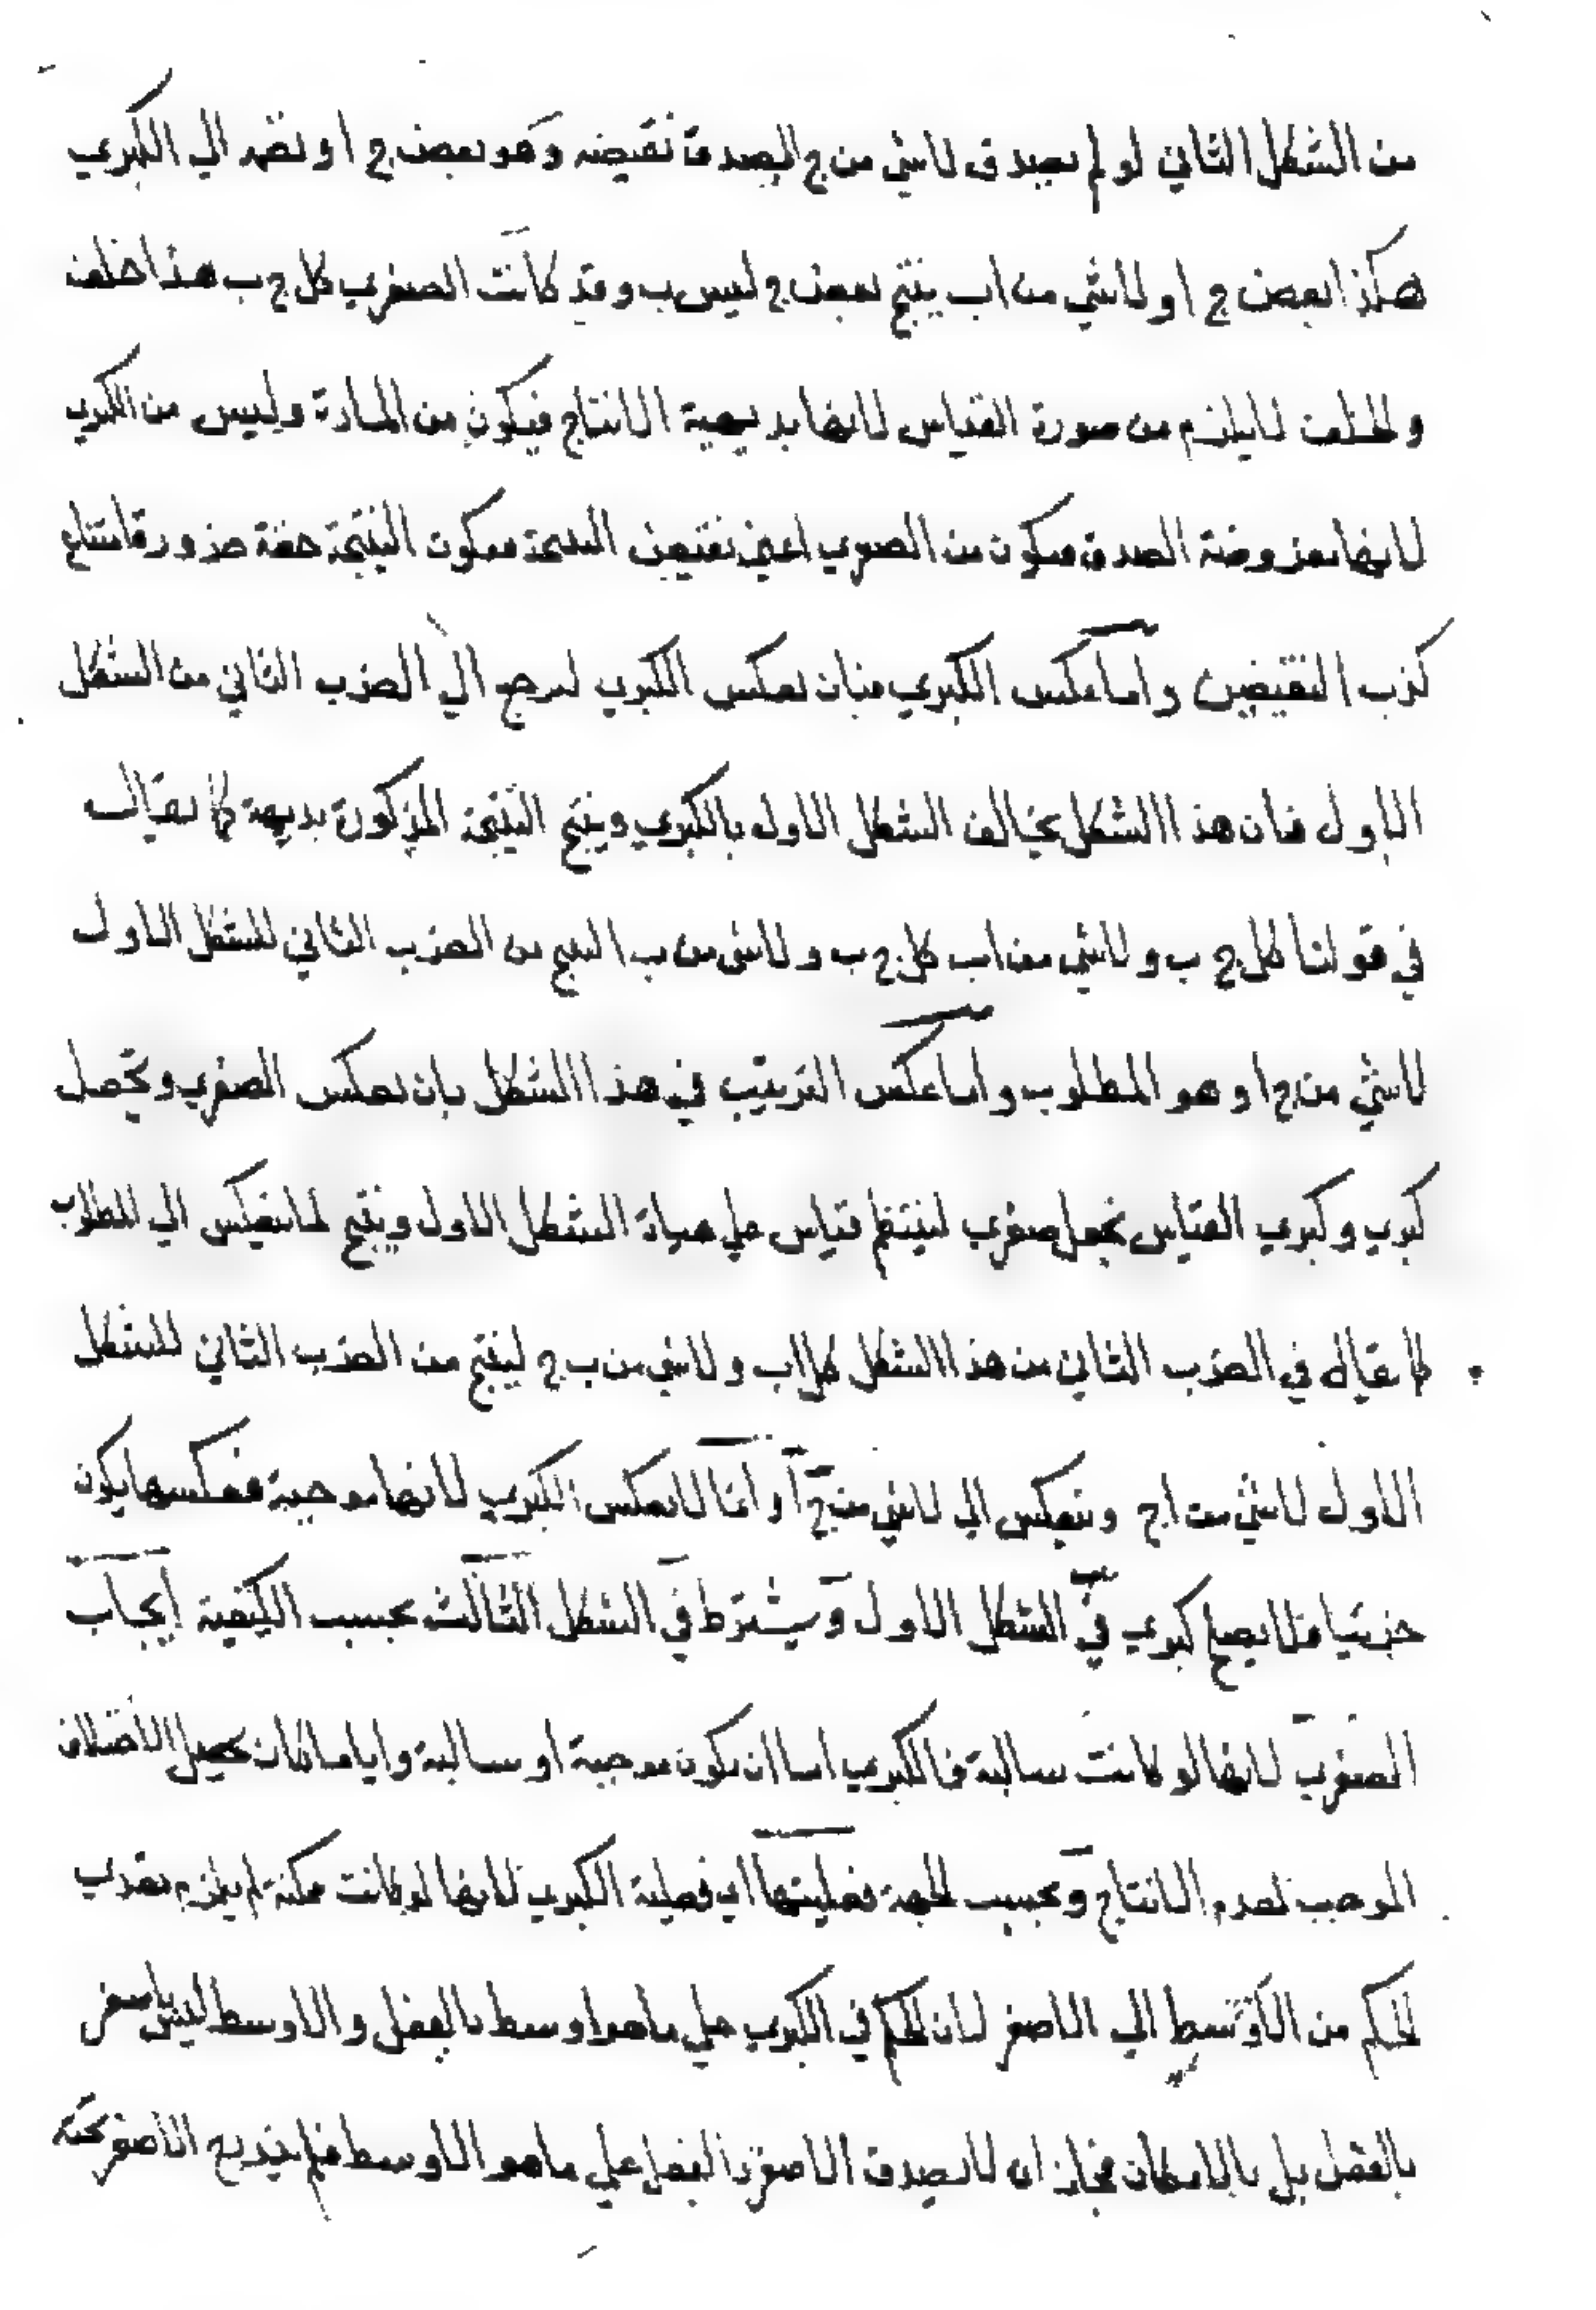 من الشكل الثاني لو لم يصدق لاشئ من ج ا لصدق نقيضه وهو بعض ج ا ونضمه الي الكبري
هكذا بعض ج ا ولاشي من اب ينتج بعض ج ليس ب وقد كانت الصغري كل ج ب هذا خلف
والخلف لايلزم من صورة القياس لانها بديهية الانتاج فيكون من المادة وليس من الكبري
لانها مفروضة الصدق فيكون من الصغري اعني نقيض النتيجة فيكون النتيجة حقة ضرورة امتناع
كذب النقيضين واما عكس الكبري فبان يعكس الكبري ليرجع الي الضرب الثاني من الشكل
الاول فان هذا الشكل يخالف الشكل الاول بالكبري وينتج النتيجة المذكورة بديهة كما يقال
في قولنا كل ج ب ولاشي من اب كل ج ب ولاشئ من ب ا ينتج من الضرب الثاني للشكل الاول
لاشئ من ج ا وهو المطلوب واما عكس الترتيب في هذا الشكل بان يعكس الصغري وتحصل
كبري وكبري القياس تجعل صغري لينتظم قياس علي هياة الشكل الاول وينتج لما ينعكس الي المطلوب
كما يقال في الضرب الثاني من هذا الشكل كل اب ولاشي من ب ج لينتج من الضرب الثاني للشكل
الاول لاشئ من اج وينعكس الي لاشئ من ج ا وانما لاينعكس الكبري لانها موجبة فعكسها يكون
جزئيا فلا يصلح كبري في الشكل الاول ويشترط في الشكل الثالث بحسب الكيفية ايجاب
الصغري لانها لو كانت سالبة فالكبري اما ان يكون موجبة او سالبة وايا ما كان يحصل الاختلاف
الموجب لعدم الانتاج وبحسب الجهة فعليتها اي فعلية الكبري لانها لو كانت ممكنة لم يلزم تعدي
الحكم من الاوسط الي الاصغر لان الحكم في الكبري علي ما هو اوسط بالفعل والاوسط ليس باصغر
بالفعل بل بالامكان فجاز ان لايصدق الاصغر بالفعل علي ما هو الاوسط فلم يندرج الاصغر تحته